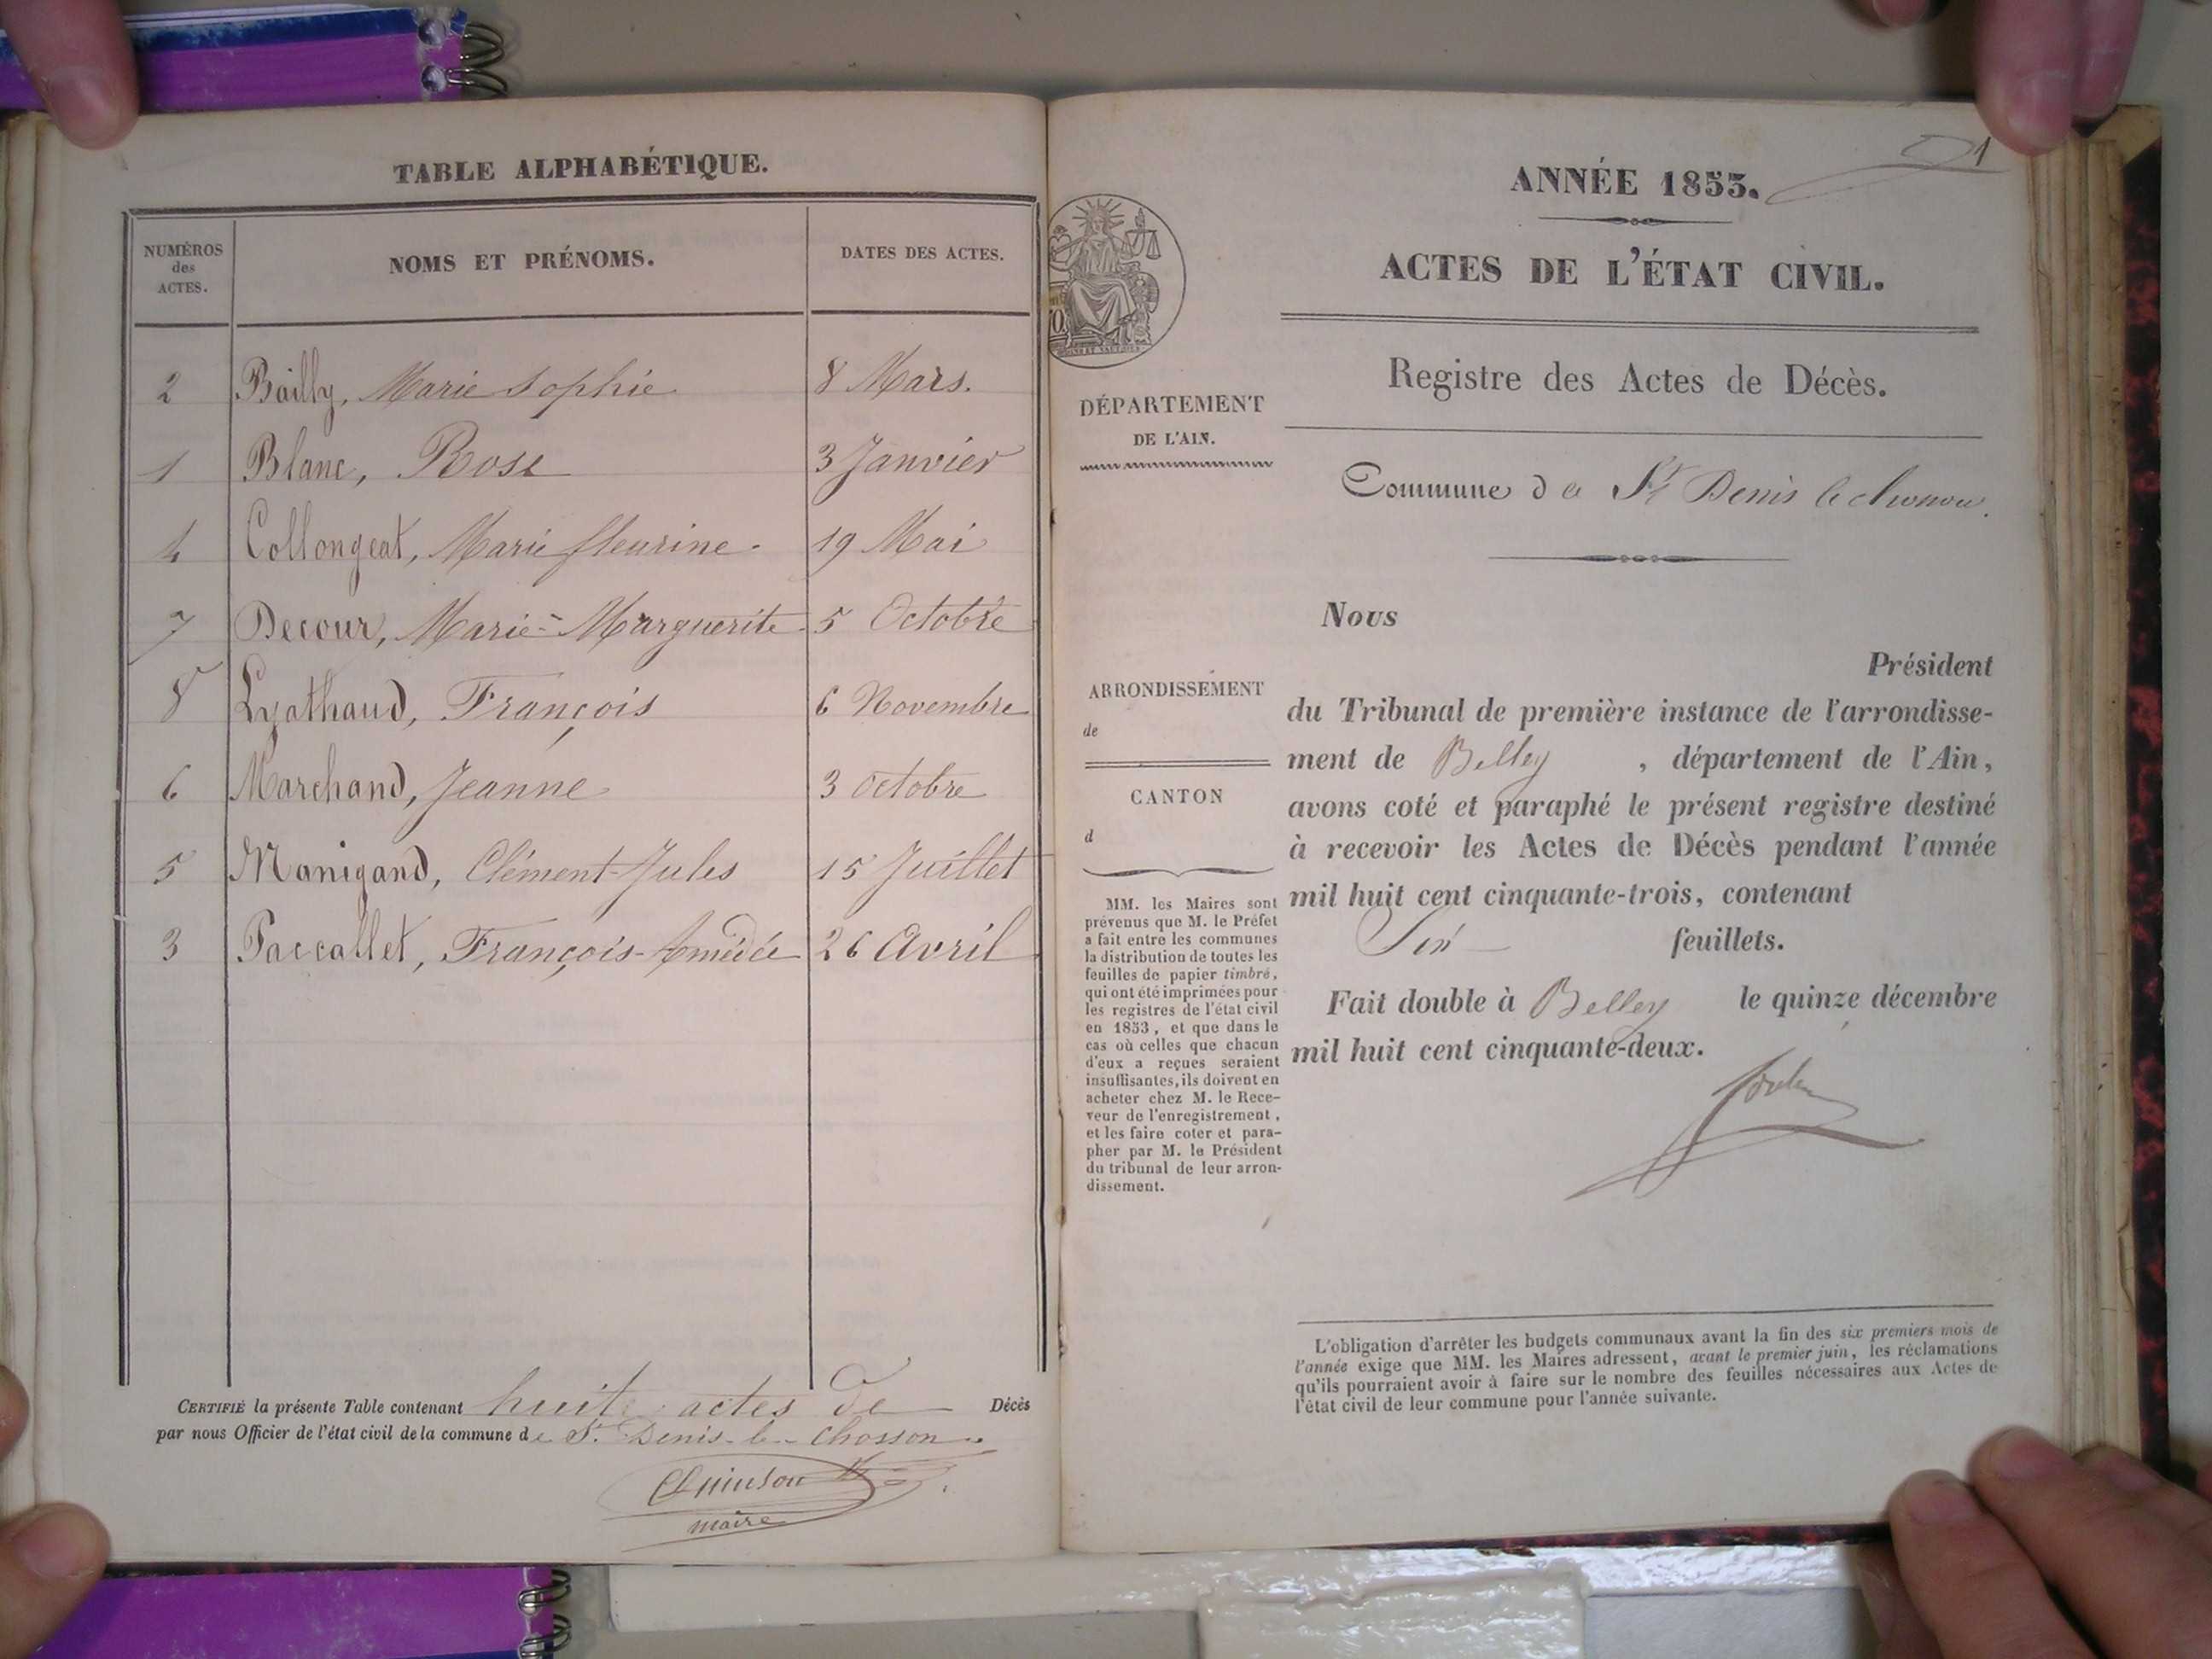 TABLE ALPHABÉTIQUE.
NUMÉROS des ACTES. NOMS ET PRÉNOMS. DATES DES ACTES.
2 Bailly, Marie Sophie 8 Mars.
1 Blanc, Rose 3 Janvier
4 Collongeat, Marie fleurine. 19 Mai
7 Decour, Marie-Marguerite 5 Octobre
8 Lyathaud, François 6 Novembre
6 Marchand, Jeanne 3 Octobre
5 Manigand, Clément-Jules 15 Juillet
3 Paccallet, François-Amédée 26 Avril
CERTIFIÉ la présente Table contenant huite actes de Décès
par nous Officier de l'état civil de la commune de St. Denis-le-Chosson.
maire
1
ANNÉE 1853.
ACTES DE L'ÉTAT CIVIL.
Registre des Actes de Décès.
DÉPARTEMENT
DE L'AIN.
Commune de St Denis le
Nous
Président
du Tribunal de première instance de l'arrondisse-
ment de Belley , département de l'Ain,
avons coté et paraphé le présent registre destiné
à recevoir les Actes de Décès pendant l'année
mil huit cent cinquante-trois, contenant
feuillets.
Fait double à Belley le quinze décembre
mil huit cent cinquante-deux.
ARRONDISSEMENT
de
CANTON
d
MM. les Maires sont
prévenus que M. le Préfet
a fait entre les communes
la distribution de toutes les
feuilles de papier timbré,
qui ont été imprimées pour
les registres de l'état civil
en 1853, et que dans le
cas où celles que chacun
d'eux a reçues seraient
insuffisantes, ils doivent en
acheter chez M. le Rece-
veur de l'enregistrement,
et les faire coter et para-
pher par M. le Président
du tribunal de leur arron-
dissement.
L'obligation d'arrêter les budgets communaux avant la fin des six premiers mois de
l'année exige que MM. les Maires adressent, avant le premier juin, les réclamations
qu'ils pourraient avoir à faire sur le nombre des feuilles nécessaires aux Actes de
l'état civil de leur commune pour l'année suivante.